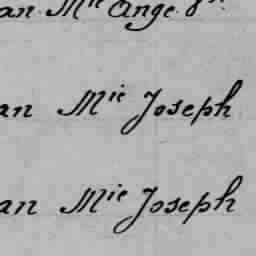 an. Mie Ange.
an Mie Joseph
an Mie Joseph